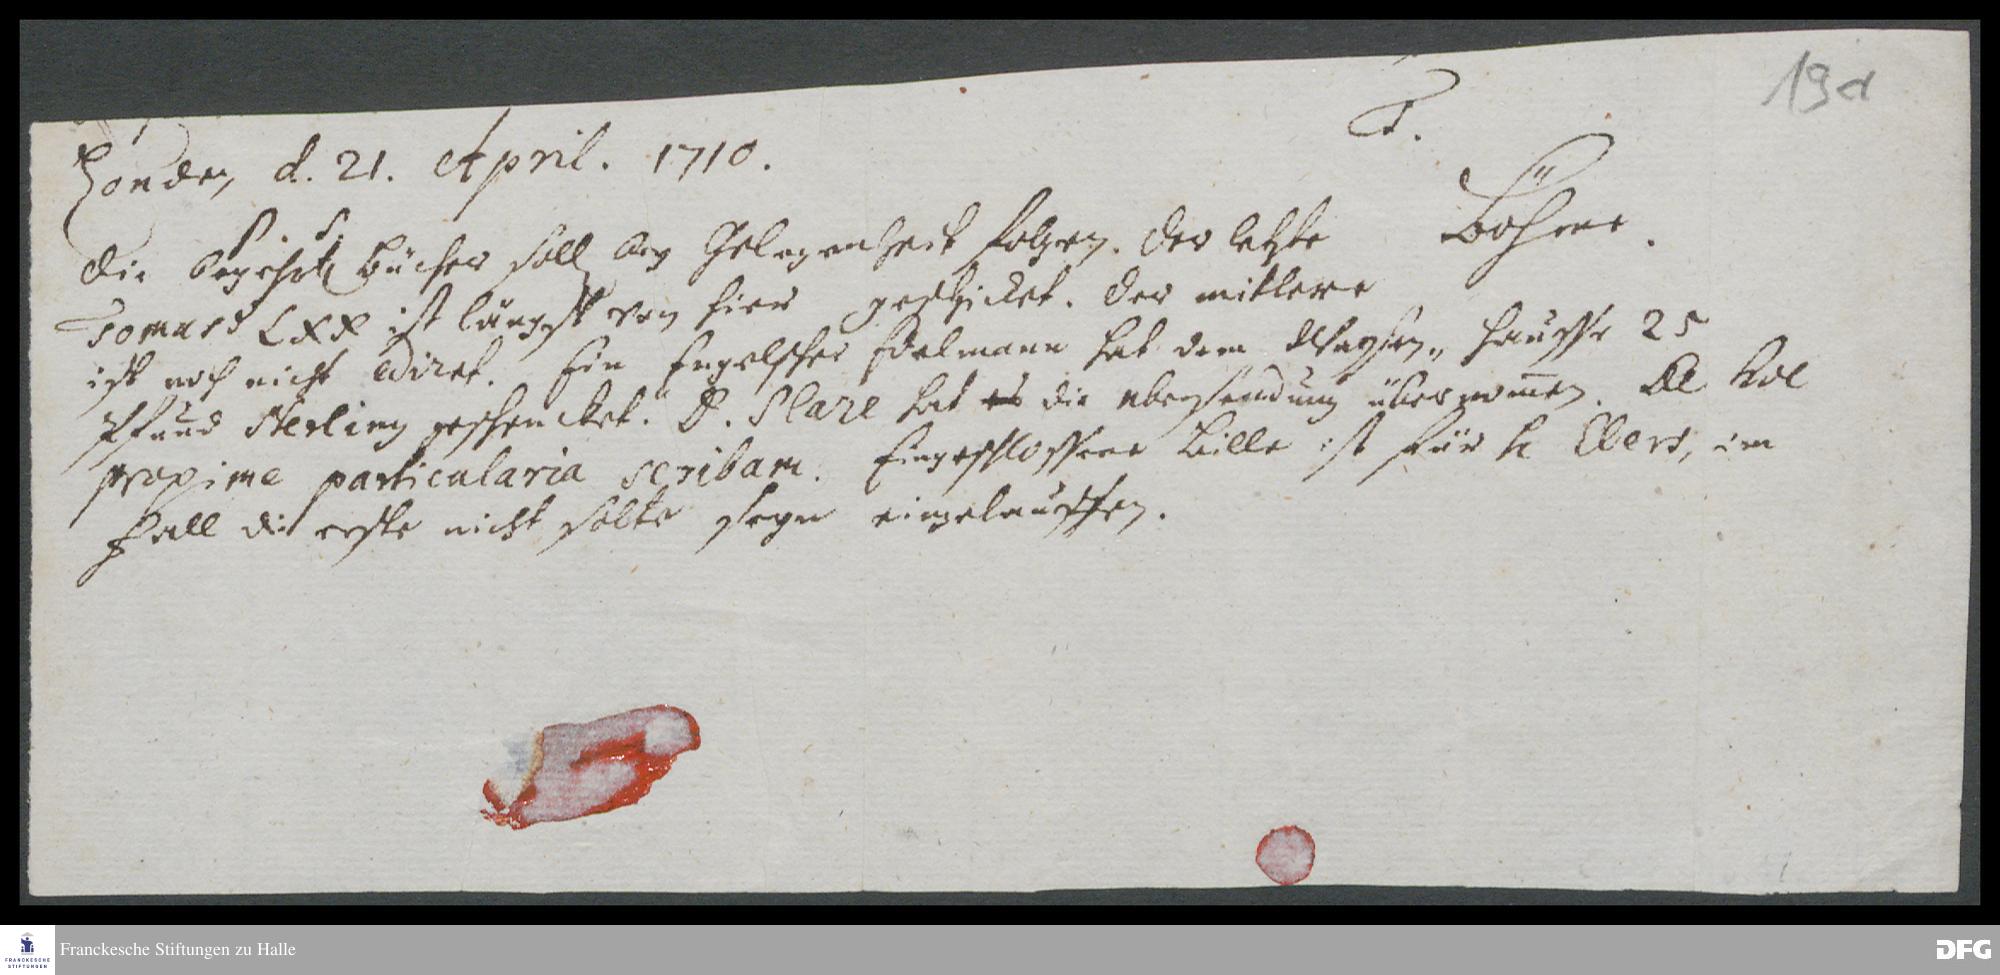 19d
London, d. 21. April. 1710.
T.
Böhme.
P. S.
Die begehrte Bücher soll bey Gelegenheit folgen. Der letzte
Tomus LXX ist längst von hier geschicket. Der mittlere
ist noch nicht ediret. Ein Engelscher Edelmann hat dem Waysen„ Hausse 25
Pfund Sterling geschencket. D. Slare hat die ubersendung übernomen.
proxime particularia scribam. Eingeschlossene Bille ist für H Elers, im
fall die erste nicht solte seyn eingelauffen.
Franckesche Stiftungen zu Halle
FRANCKESCHE
STIFTUNGEN
DFG